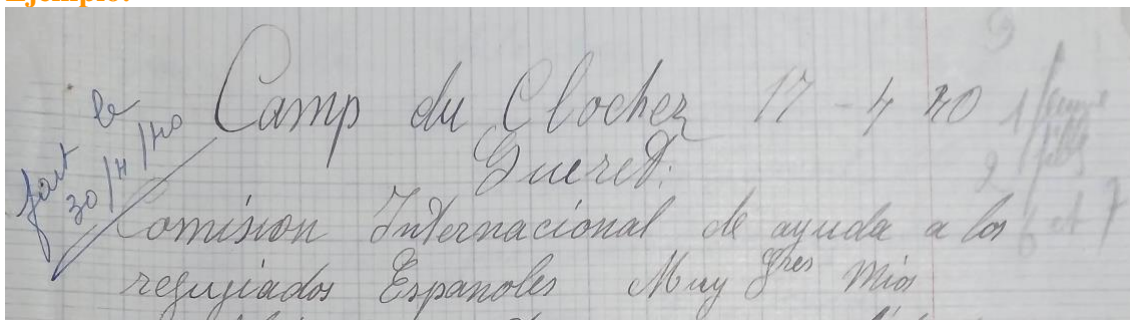 Ejemplo:
fait le
30/4/40
Camp du Clocher 17 - 4 40
Gueret.
Comision Internacional de ayuda a los
refugiados Espanoles Muy Sres mios
1/femme
2 filles
6 et 7